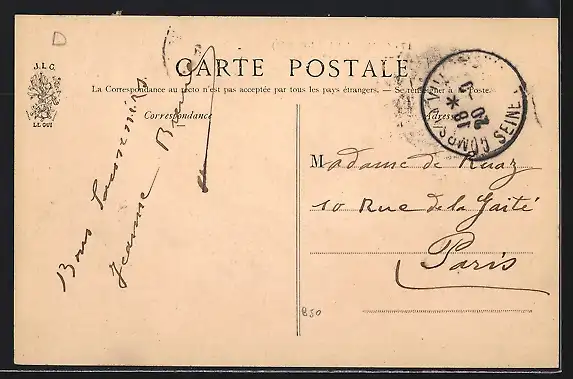 D
J.L.C.
LE GUI
CARTE POSTALE
La Correspondance au recto n'est pas acceptée par tous les pays étrangers. — Se renseigner à la Poste.
Correspondance
Adresse
Bons Souvenirs
Jeanne
18 *
20 -
SEINE
Madame de Ruaz
10 Rue de la Gaité
Paris
850